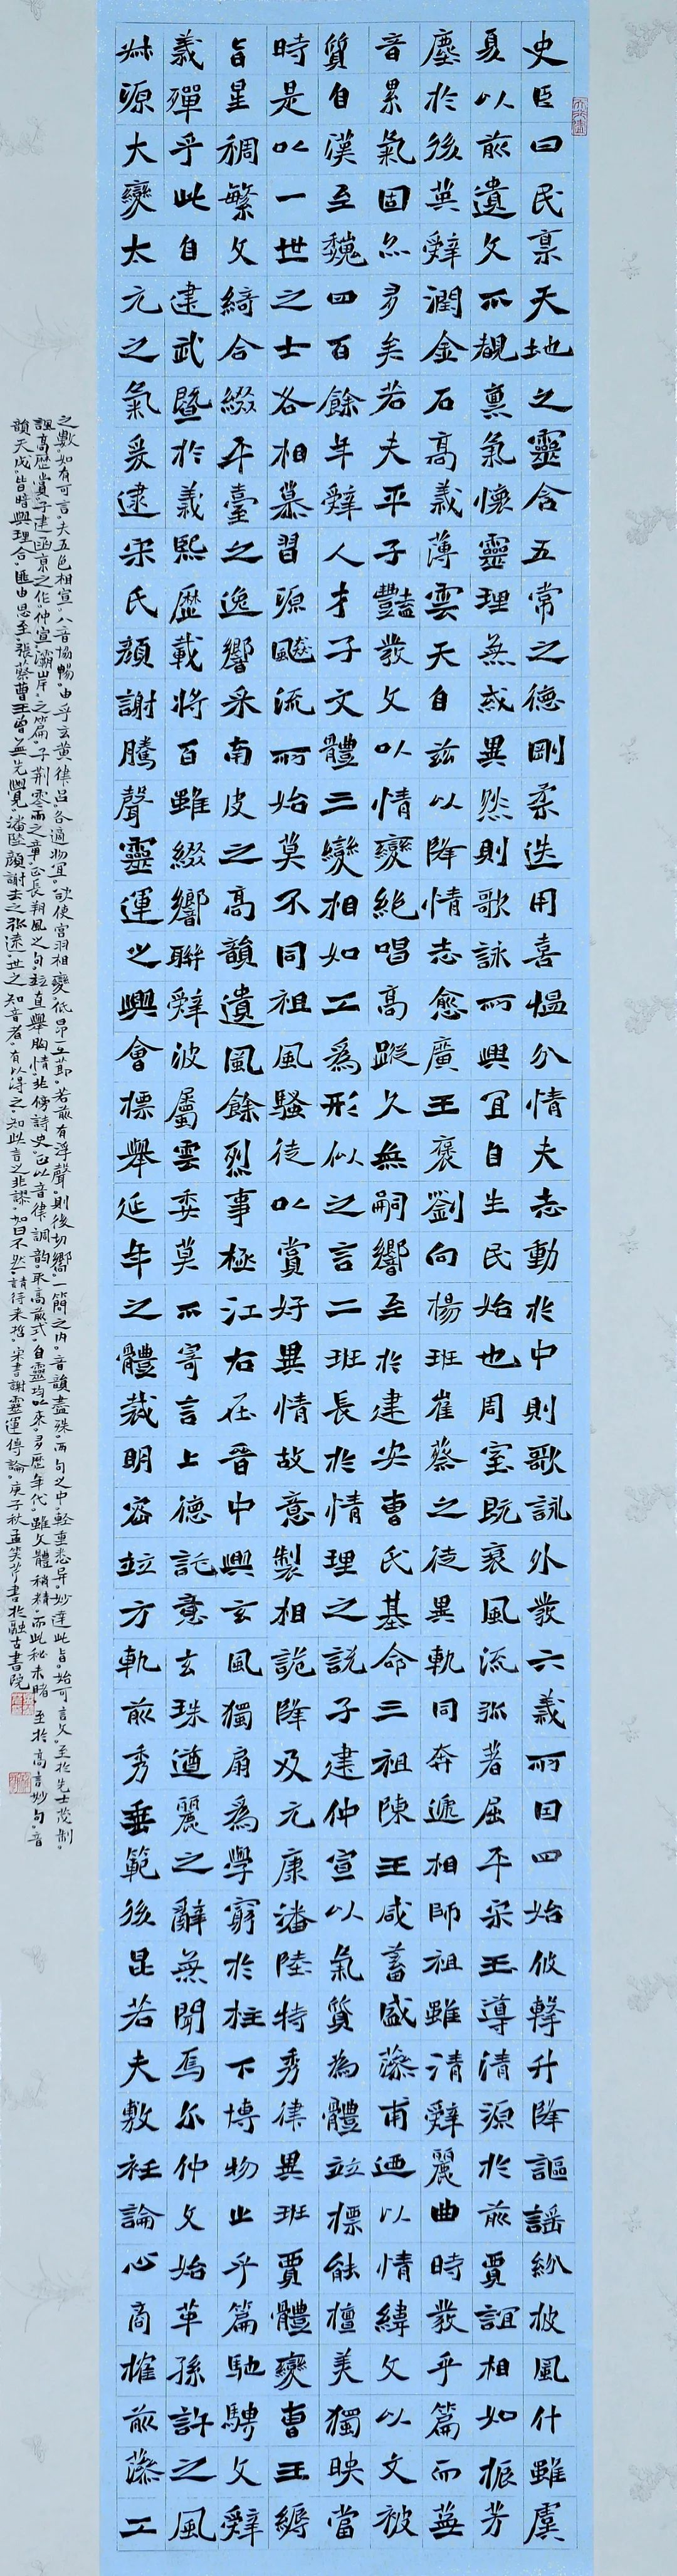 史臣曰民稟天地之靈含五常之德剛柔迭用喜慍分情夫志動於中則歌詠外發六義所因四始攸繫升降謳謠紛披風什雖虞
夏以前遺文不覩稟氣懷靈理無或異然則歌詠所興宜自生民始也周室既衰風流弥著屈平宋玉導清源於前賈誼相如振芳
塵於後英辭潤金石高義薄雲天自茲以降情志愈廣王褒劉向楊班崔蔡之徒異軌同奔遞相師祖雖清辭麗曲時發乎篇而蕪
音累氣固亦多矣若夫平子豔發文以情變絕唱高蹤久無嗣響至於建安曹氏基命三祖陳王咸蓄盛藻甫迺以情緯文以文被
質自漢至魏四百餘年辭人才子文體三變相如工為形似之言二班長於情理之說子建仲宣以氣質為體並標能擅美獨映當
時是以一世之士各相慕習源飈流所始莫不同祖風騷徒以賞好異情故意製相詭降及元康潘陸特秀律異班賈體變曹王縟
旨星稠繁文綺合綴平臺之逸響采南皮之高韻遺風餘烈事極江右在晉中興玄風獨扇為學窮於柱下博物止乎篇馳騁文辭
義殫乎此自建武暨於義熙歷載將百雖綴響聯辭波屬雲委莫不寄言上德託意玄珠遒麗之辭無聞焉尔仲文始革孫許之風
叔源大變太元之氣爰逮宋氏顏謝騰聲靈運之興會標舉延年之體裁明密並方軌前秀垂範後昆若夫敷衽論心商榷前藻工
之數如有可言夫五色相宣八音協暢由乎玄黃律呂各適物宜欲使宮羽相變低昂互節若前有浮聲則後切響一簡之內音韻盡殊兩句之中輕重悉異妙達此旨始可言文至於先士茂制
諷高歷賞子建函京之作仲宣灞岸之篇子荊零雨之章正長朔風之句並直舉胸情非傍詩史正以音律調韻取高前式自靈均以來多歷年代雖文體稍精而此秘未睹至於高言妙句音
韻天成皆暗與理合匪由思至張蔡曹王曾無先覺潘陸顏謝去之弥遠世之知音者有以得之知此言之非謬如曰不然請待來哲宋書謝靈運傳論庚子秋孟笑芹書於融古書院